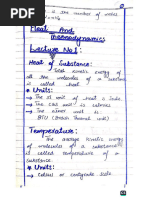 is the number of moles
Heat And
Thermodynamics
Lecture No 1
Heat of Substance:
Total kinetic energy of
all the molecules of a substance
is called heat.
Units:
→ The SI unit of heat is Joule
→ The CGS unit is calories
→ The other unit is
BTU (British Thermal Unit)
Temperature:
The average kinetic energy
of molecules of a substance
is called temperature of a
substance.
Units:
→ Celsius or centigrade scale